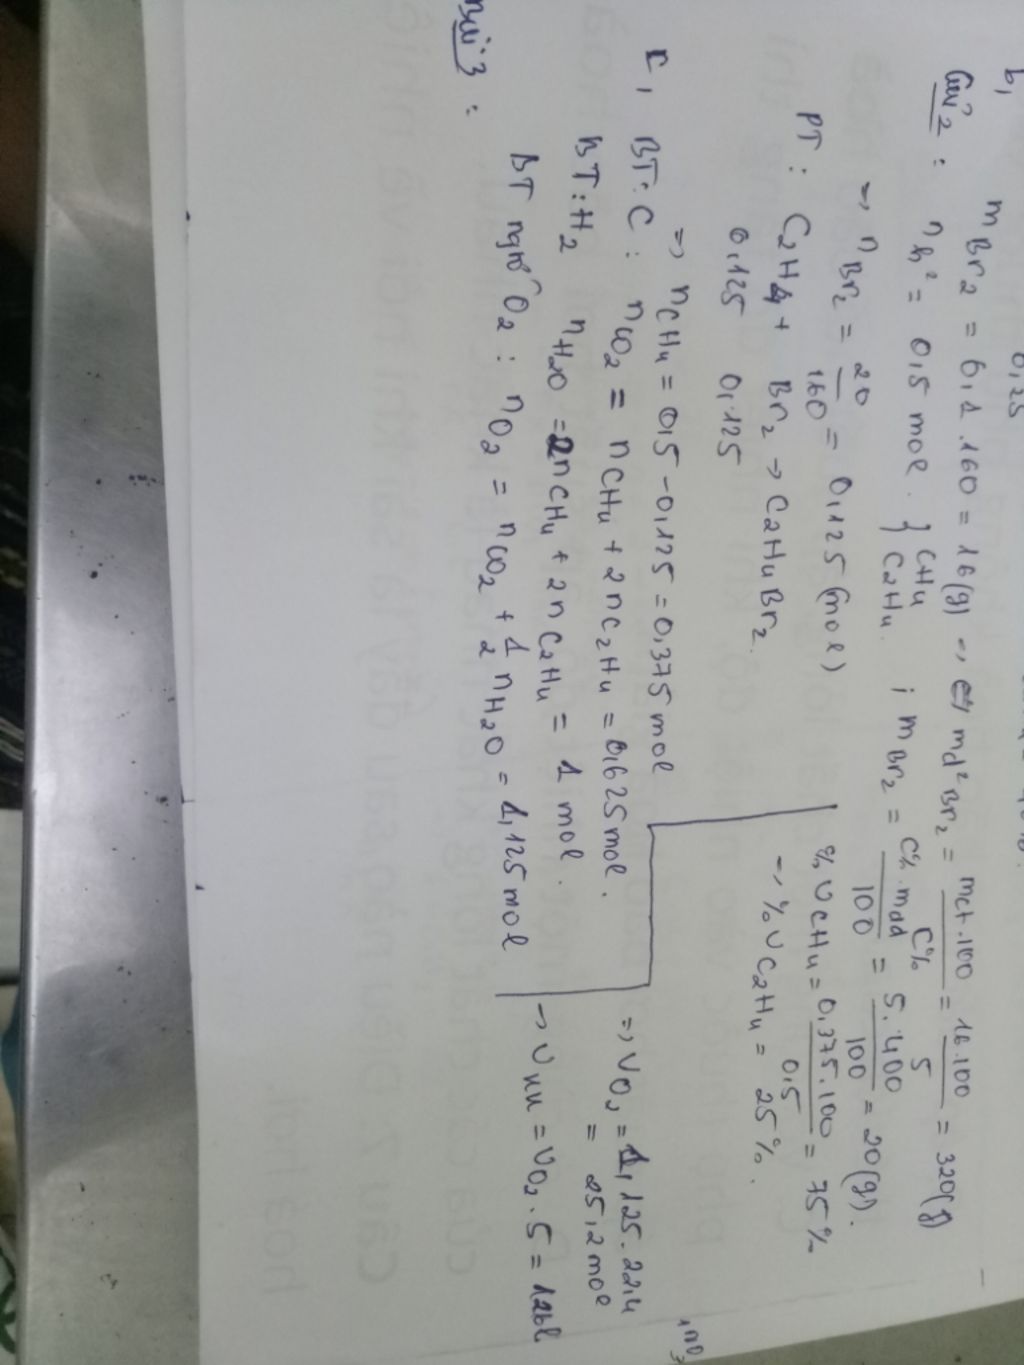 b,
0,25
m Br2 = 0,1.160 = 16(g) → md² Br2 = mct.100 / C% = 16.100 / 5 = 320(g)
Bài 2 : nh² = 0,5 mol. } CH4 C2H4. ; m Br2 = C%.mdd / 100 = 5.400 / 100 = 20(g).
→ nBr2 = 20 / 160 = 0,125 (mol)
PT : C2H4 + Br2 → C2H4Br2.
0,125 0,125
⇒ nCH4 = 0,5 - 0,125 = 0,375 mol
% VCH4 = 0,375.100 / 0,5 = 75%
→ % VC2H4 = 25%.
C, BT:C : nCO2 = nCH4 + 2nC2H4 = 0,625 mol.
BT:H2 nH2O = 2nCH4 + 2nC2H4 = 1 mol.
BT ngtố O2 : nO2 = nCO2 + 1/2 nH2O = 1,125 mol
⇒ VO2 = 1,125.22,4
= 25,2 mol
→ Vkk = VO2.5 = 126l
Bài 3 :